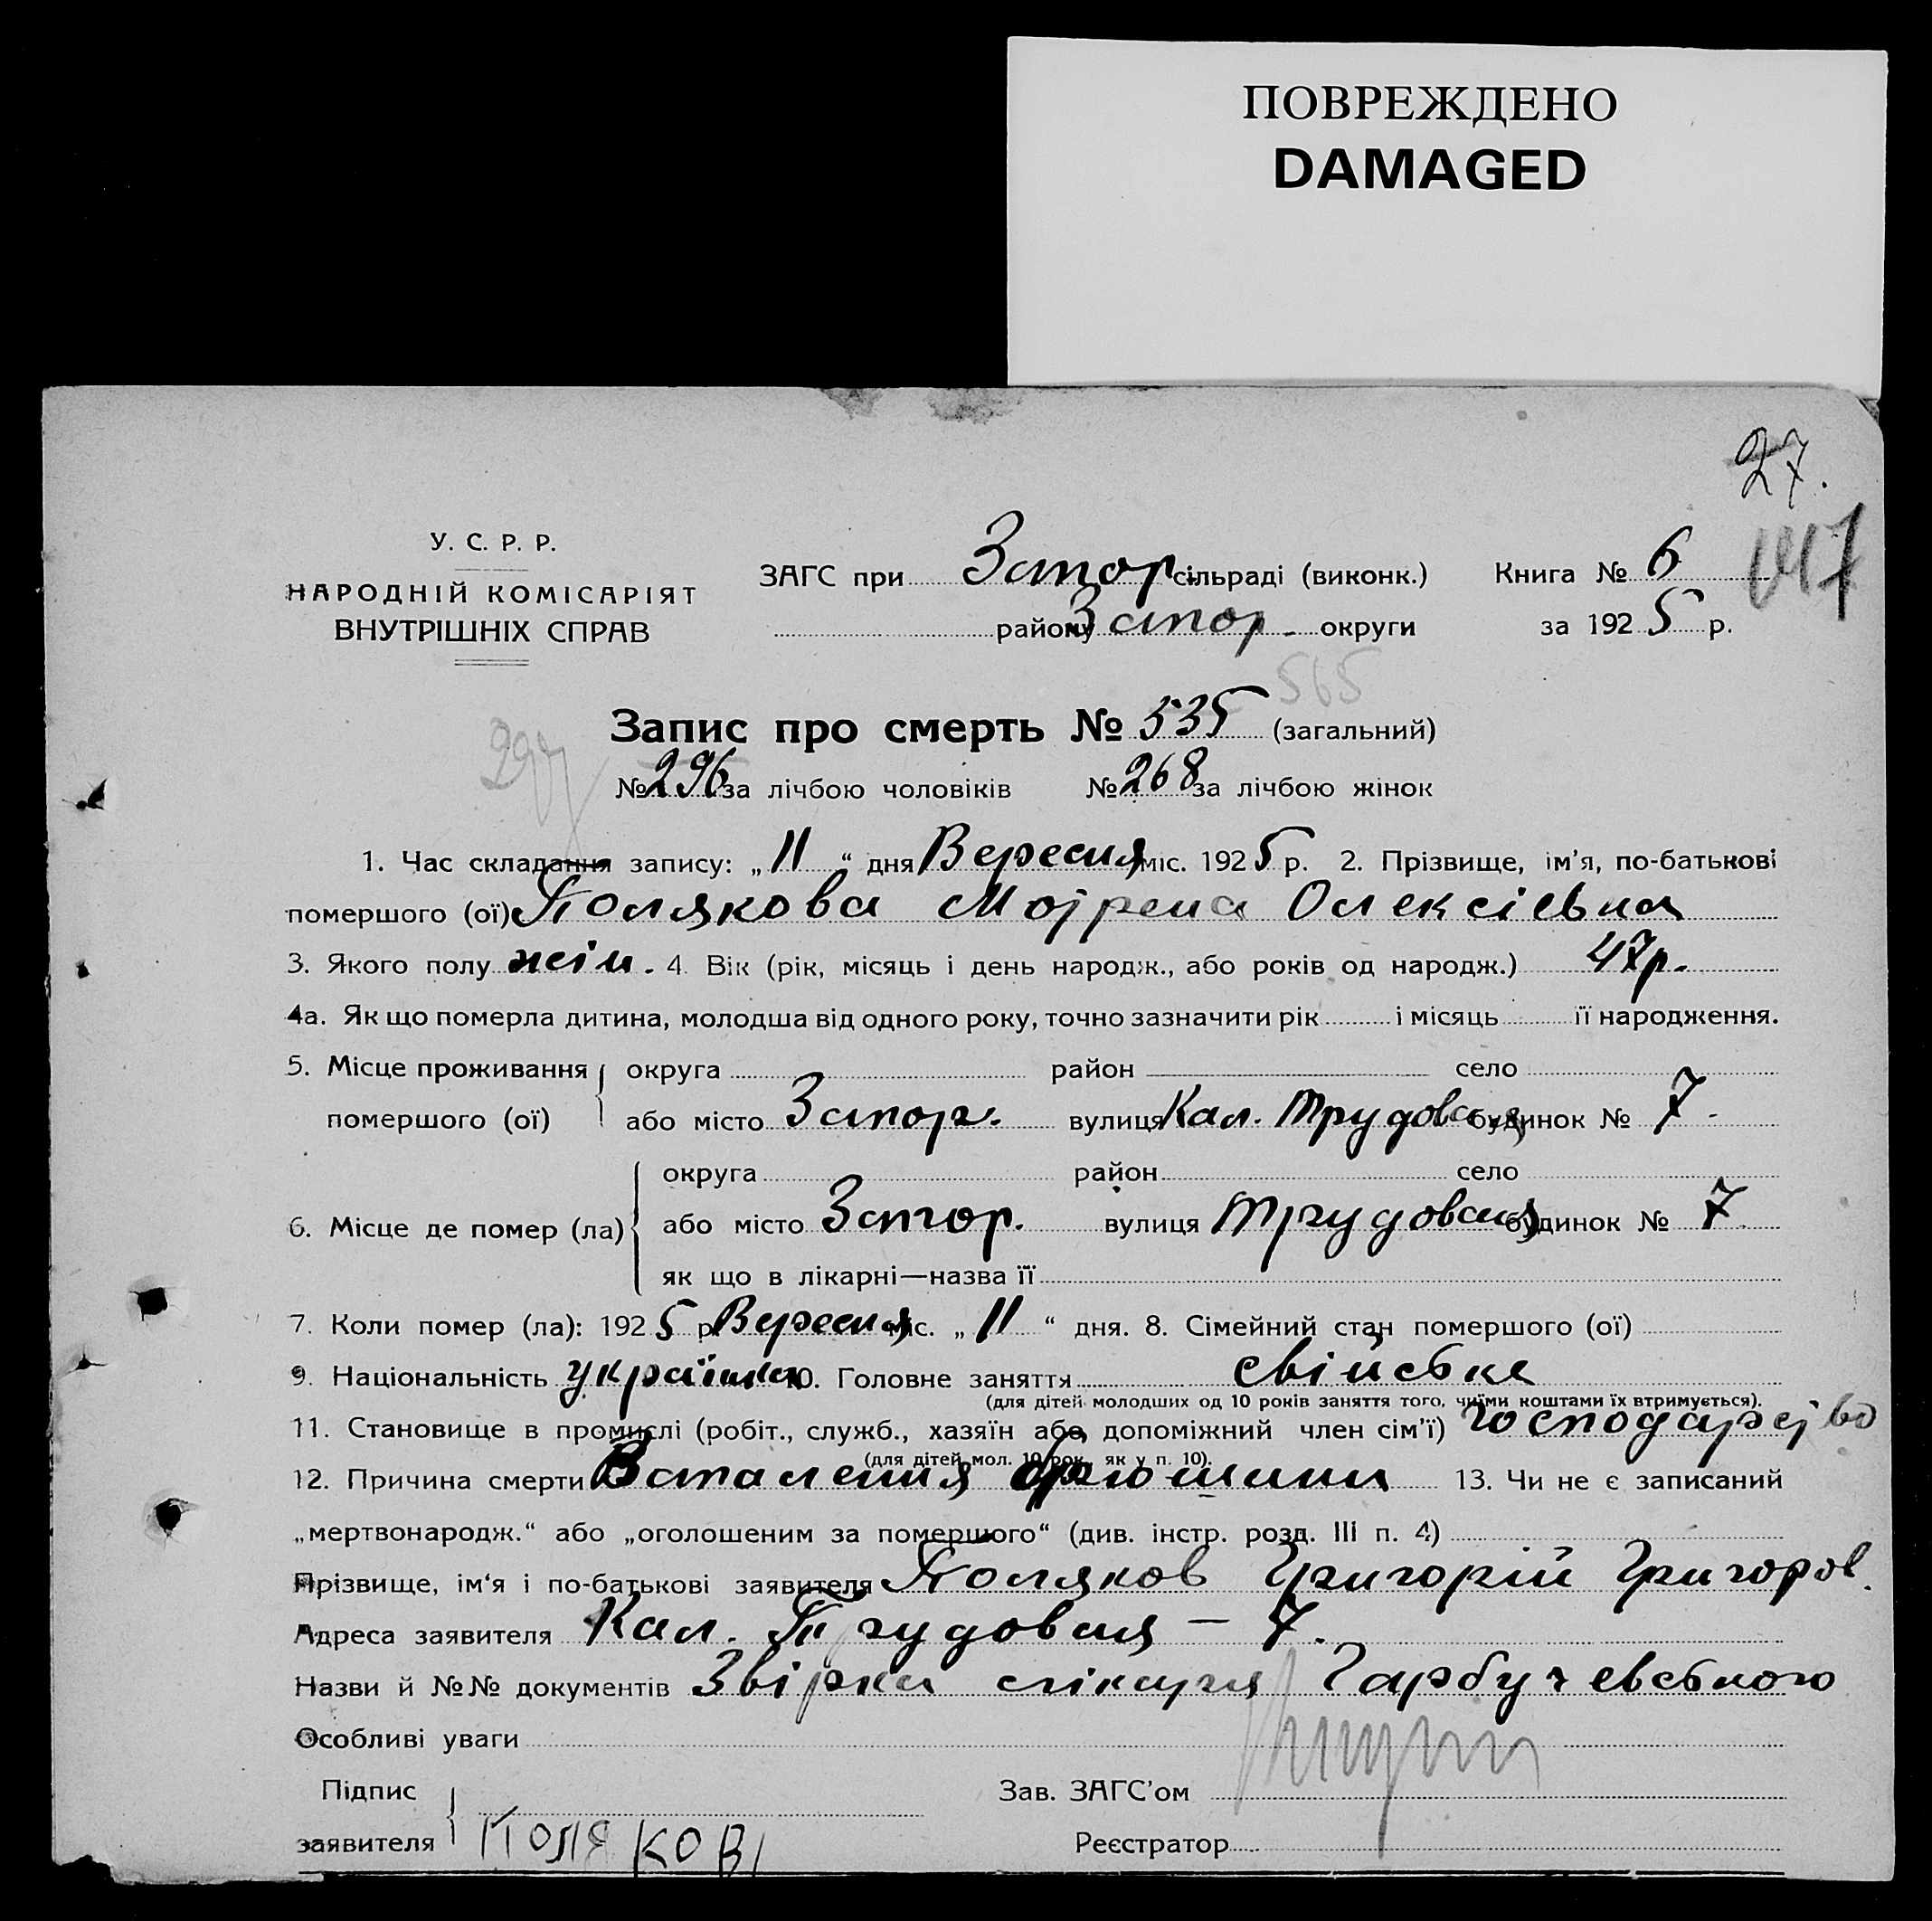 ПОВРЕЖДЕНО
DAMAGED
27.
У. С. Р. Р.
НАРОДНІЙ КОМІСАРІЯТ
ВНУТРІШНІХ СПРАВ
ЗАГС при Запор. сільраді (виконк.) Книга № 6
району Запор. округи за 1925 р.
565
Запис про смерть № 535 (загальний)
297
№ 296 за лічбою чоловіків № 268 за лічбою жінок
1. Час складання запису: „11“ дня Вересня міс. 1925 р. 2. Прізвище, ім'я, по-батькові
помершого (ої) Полякова Мотрена Олексіевна
3. Якого полу жін. 4. Вік (рік, місяць і день народж., або років од народж.) 47р.
4а. Як що померла дитина, молодша від одного року, точно зазначити рік і місяць її народження.
5. Місце проживання округа район село
помершого (ої) або місто Запор. вулиця Кал. Трудовая будинок № 7.
округа район село
6. Місце де помер (ла) або місто Запор. вулиця Трудовая будинок № 7.
як що в лікарні—назва її
7. Коли помер (ла): 1925 р. Вересня міс. „11“ дня. 8. Сімейний стан помершого (ої)
9. Національність українка 10. Головне заняття свійське
(для дітей молодших од 10 років заняття того, чиїми коштами їх втримується).
11. Становище в промислі (робіт., служб., хазяїн або допоміжний член сім'ї) господарство
(для дітей мол. 10 рок., як у п. 10).
12. Причина смерти Запалення брюшини 13. Чи не є записаний
„мертвонародж.“ або „оголошеним за помершого“ (див. інстр. розд. III п. 4)
Прізвище, ім'я і по-батькові заявителя Поляков Григорій Григоров.
Адреса заявителя Кал. Трудовая – 7.
Назви й №№ документів Звірка лікаря Гарбучевського
Особливі уваги
Підпис Зав. ЗАГС'ом
заявителя ПОЛЯКОВ Реєстратор